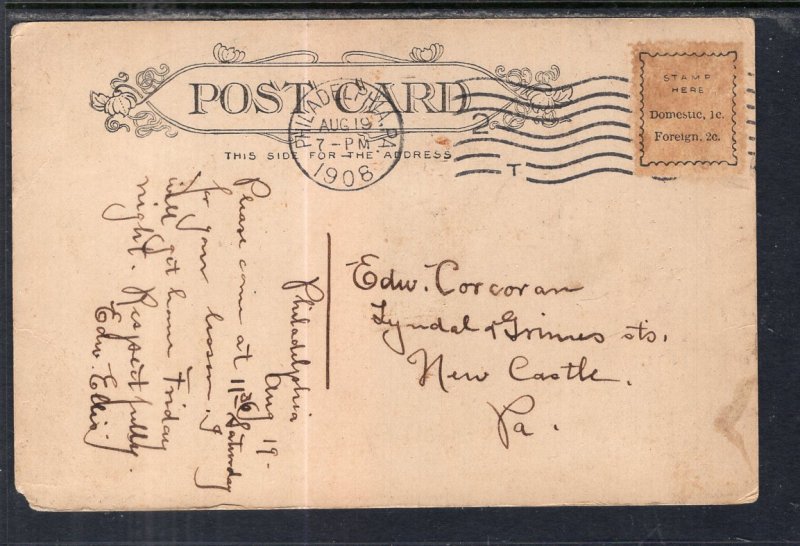 POST CARD
THIS SIDE FOR THE ADDRESS
PHILADELPHIA, PA
AUG 19
7-PM
1908
2
T
STAMP
HERE
Domestic, 1c.
Foreign, 2c.
Philadelphia
Aug 19-
Please come at 11 Saturday
for your lesson. I
will get home Friday
night. Respectfully
Edw. Ellis
Edw. Corcoran
Lyndal & Grimes sts.
New Castle.
Pa.